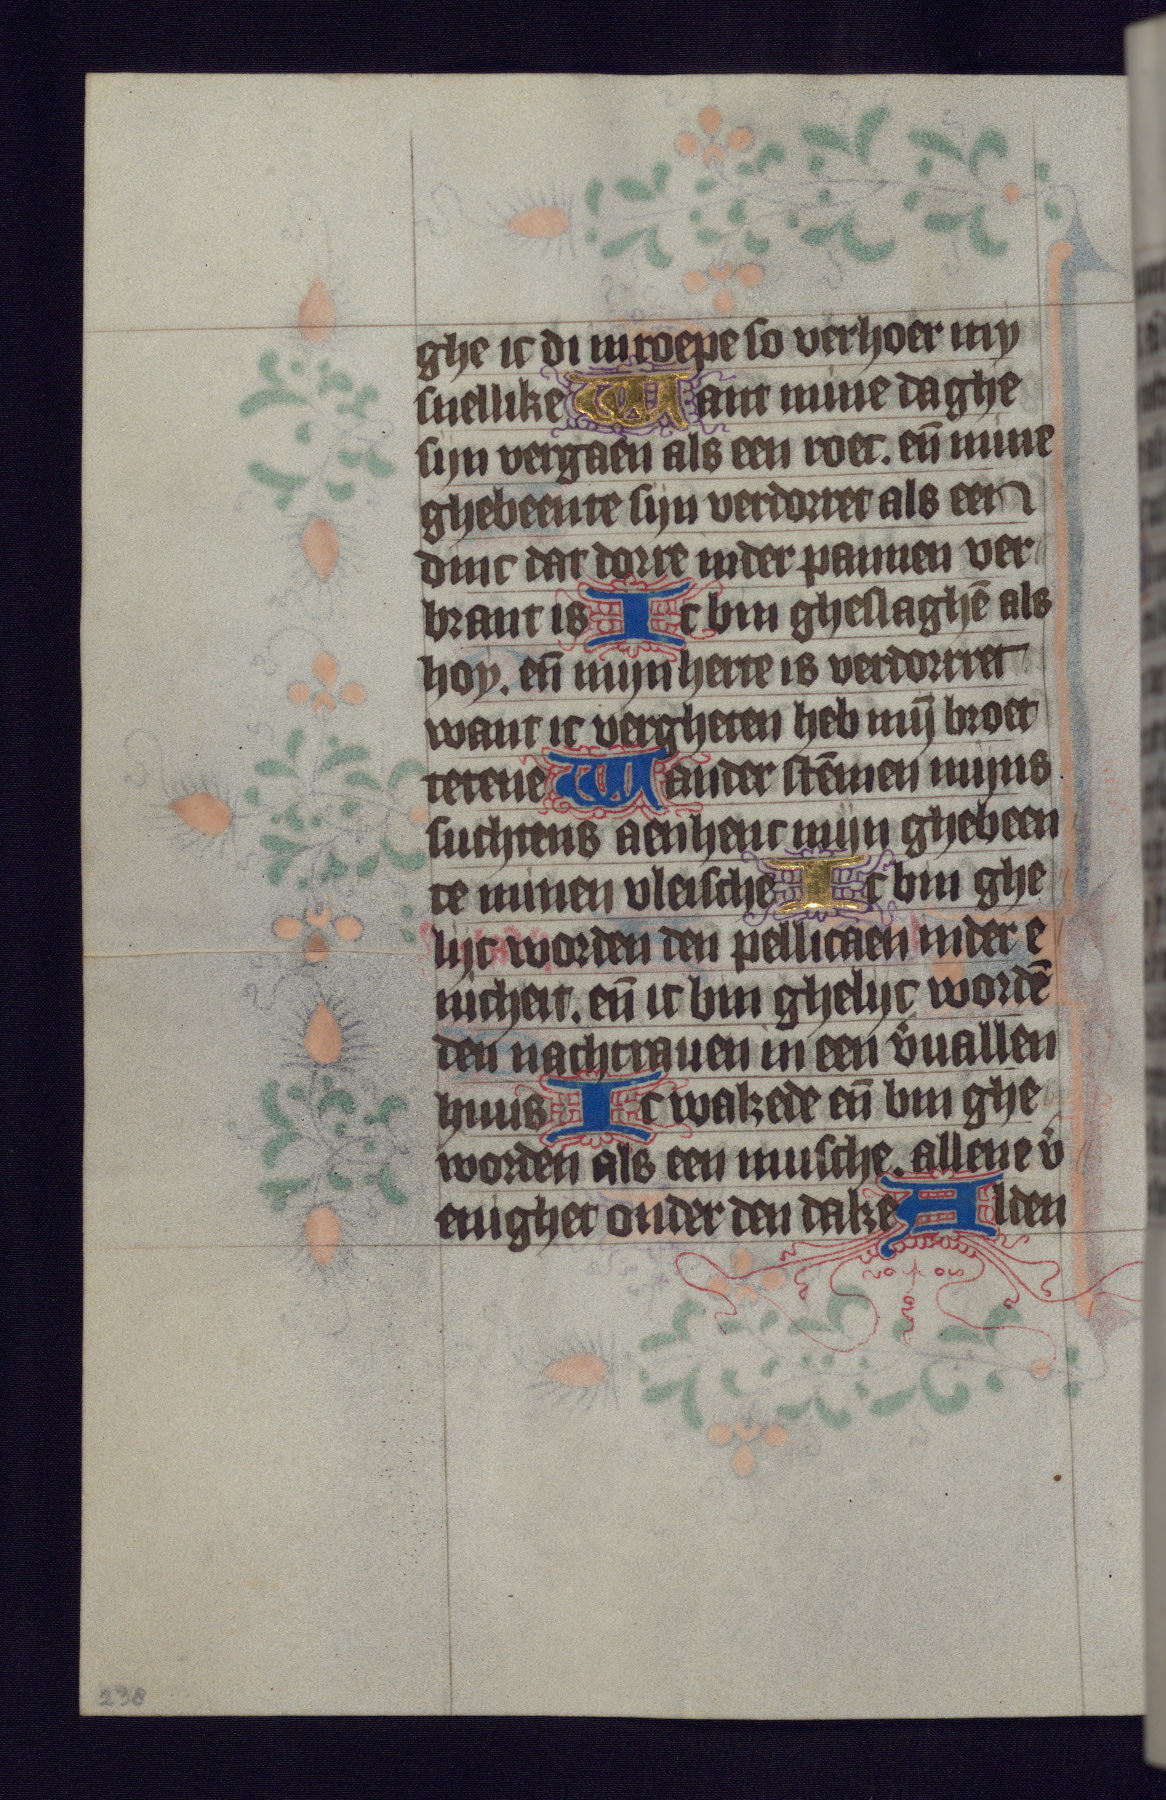 ghe ic di inroepe so verhoer my
snellike Want mine daghe
sijn vergaen als een roec. en̄ mine
ghebeente sijn verdorret als een
dinc dat dorre inder pannen ver
brant is Ic bin gheslaghē als
hoy. en̄ mijn herte is verdorrret
want ic vergheten heb mȳ broet
tetene Wander stēmen mijns
suchtens aenhenc mijn ghebeen
te minen vleische Ic bin ghe
lijc worden den pellicaen inder e
nicheit. en̄ ic bin ghelijc wordē
den nachtrauen in een v̓uallen
huus Ic wakede en̄ bin ghe
worden als een musche. allene v̓
enighet onder den dake Alden
238